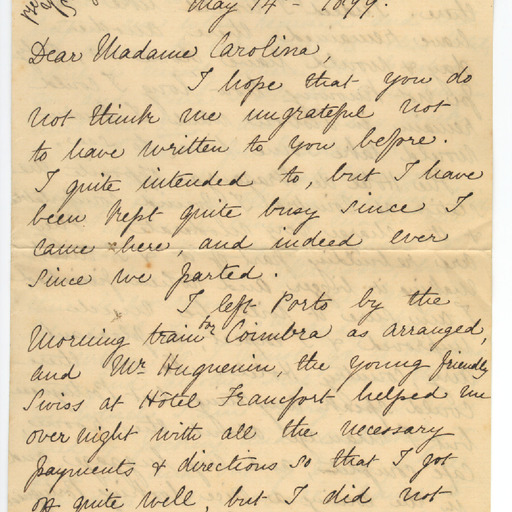 May 14th 1899.
Dear Madame Carolina,
I hope that you do
not think me ungrateful not
to have written to you before.
I quite intended to, but I have
been kept quite busy since I
came here, and indeed ever
since we parted.
I left Porto by the
morning train for Coimbra as arranged,
and Mr Huguenin, the young friendly
Swiss at Hôtel Francfort helped me
over night with all the necessary
payments & directions so that I got
off quite well, but I did not